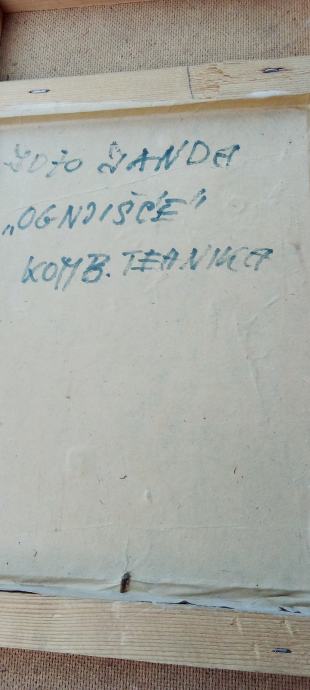 JOŽO JANDA
„OGNJIŠČE"
KOMB. TEHNIKA